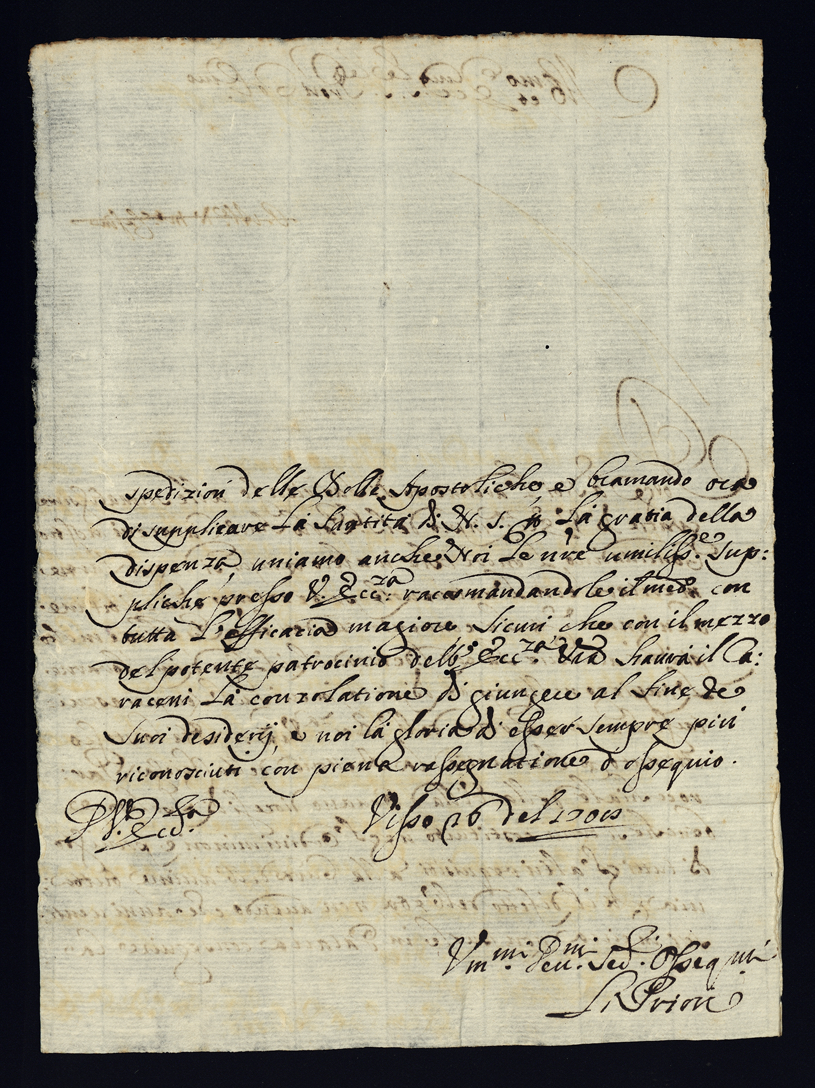 spedizioni delle Bolle Apostoliche e bramando ora
di supplicare La Santità di N. S. p La gratia della
dispenza, uniamo anche Noi Le nre umiliss.e sup:
pliche presso V. Ecc.za racomandandole il med.o con
tutta L'efficacia magiore sicuri che con il mezzo
del potente patrocinio dell' Ecc.za Vra haurà il Ca:
raceni La conzolatione di giungere al fine de
suoi desiderij, e noi la gloria di esser sempre più
riconosciuti con piena rassegnatione d'ossequio.
D V. Ecc.za Visso 16 del 1708
Vm.mi Deu.mi Ser. Ossequ.mi
Li Priori